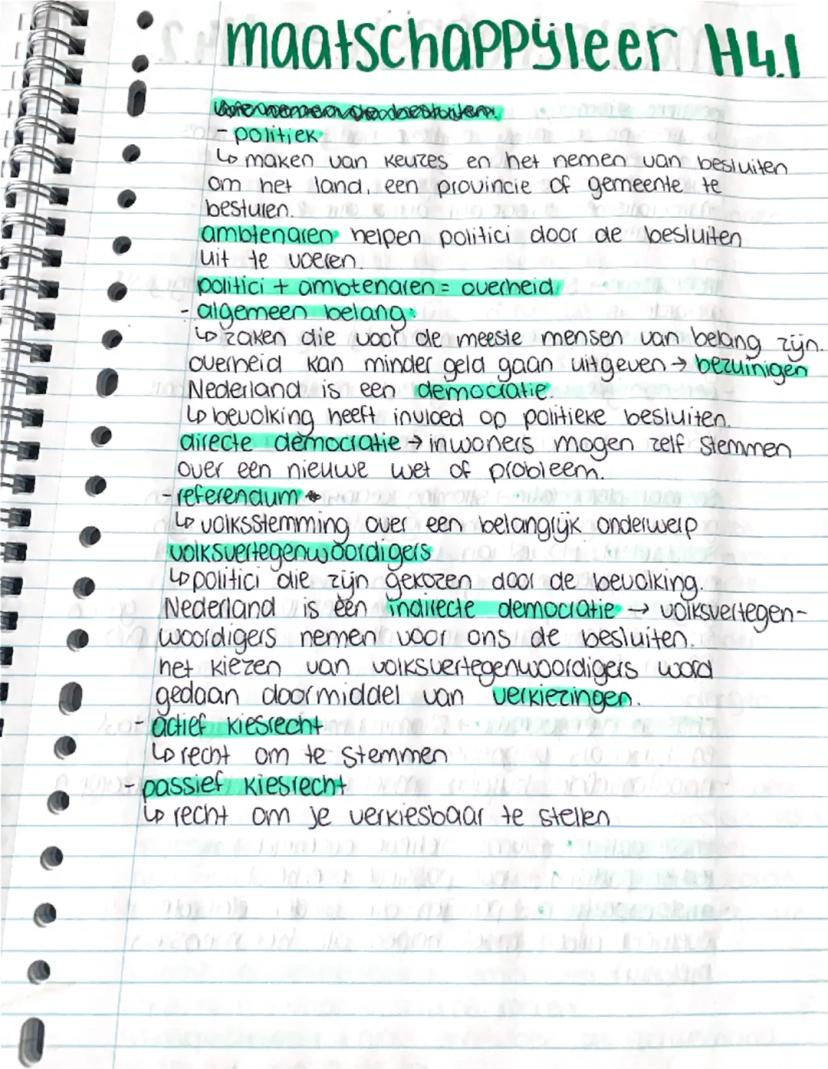 maatschappijleer H4.1
- politiek
↳ maken van keuzes en het nemen van besluiten
om het land, een provincie of gemeente te
besturen.
ambtenaren helpen politici door de besluiten
uit te voeren.
politici + ambtenaren = overheid
- algemeen belang.
↳ zaken die voor de meeste mensen van belang zijn.
overheid kan minder geld gaan uitgeven → bezuinigen
Nederland is een democratie.
↳ bevolking heeft invloed op politieke besluiten.
directe democratie → inwoners mogen zelf stemmen
over een nieuwe wet of probleem.
- referendum
↳ volksstemming over een belangrijk onderwerp
volksvertegenwoordigers
↳ politici die zijn gekozen door de bevolking.
Nederland is een indirecte democratie → volksvertegen-
woordigers nemen voor ons de besluiten.
het kiezen van volksvertegenwoordigers word
gedaan doormiddel van verkiezingen.
- actief kiesrecht
↳ recht om te stemmen
- passief kiesrecht
↳ recht om je verkiesbaar te stellen